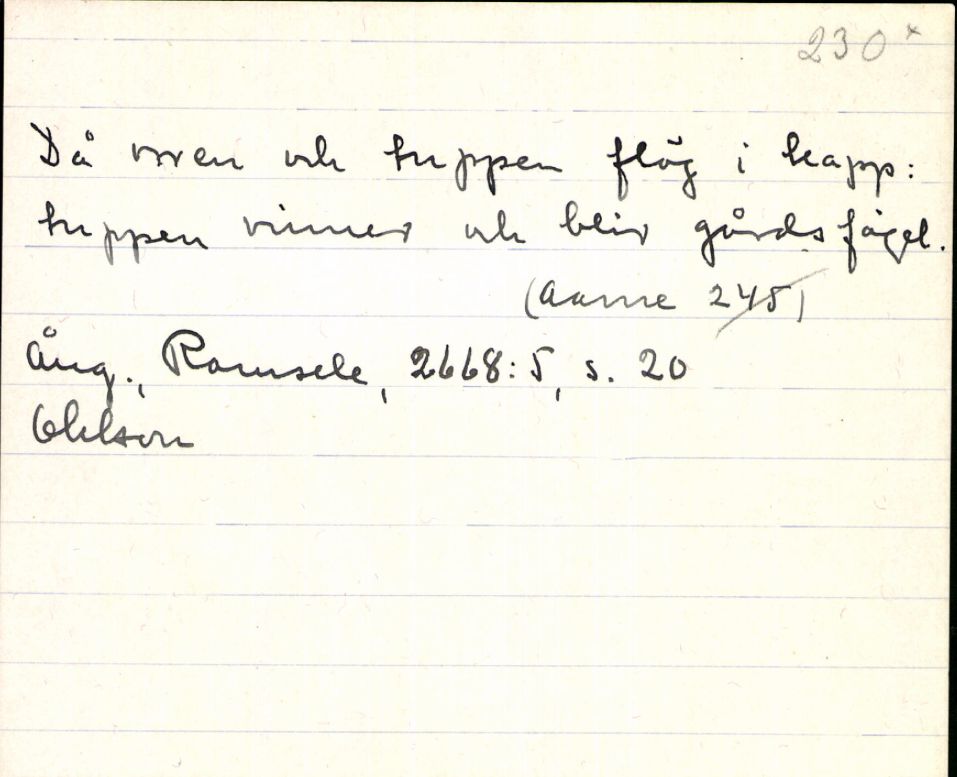 230*
Då orren och tuppen flög i kapp:
tuppen vinner och blir gårdsfågel.
(Aarne 245)
Ång., Ramsele, 2668:5, s. 20
Ohlson